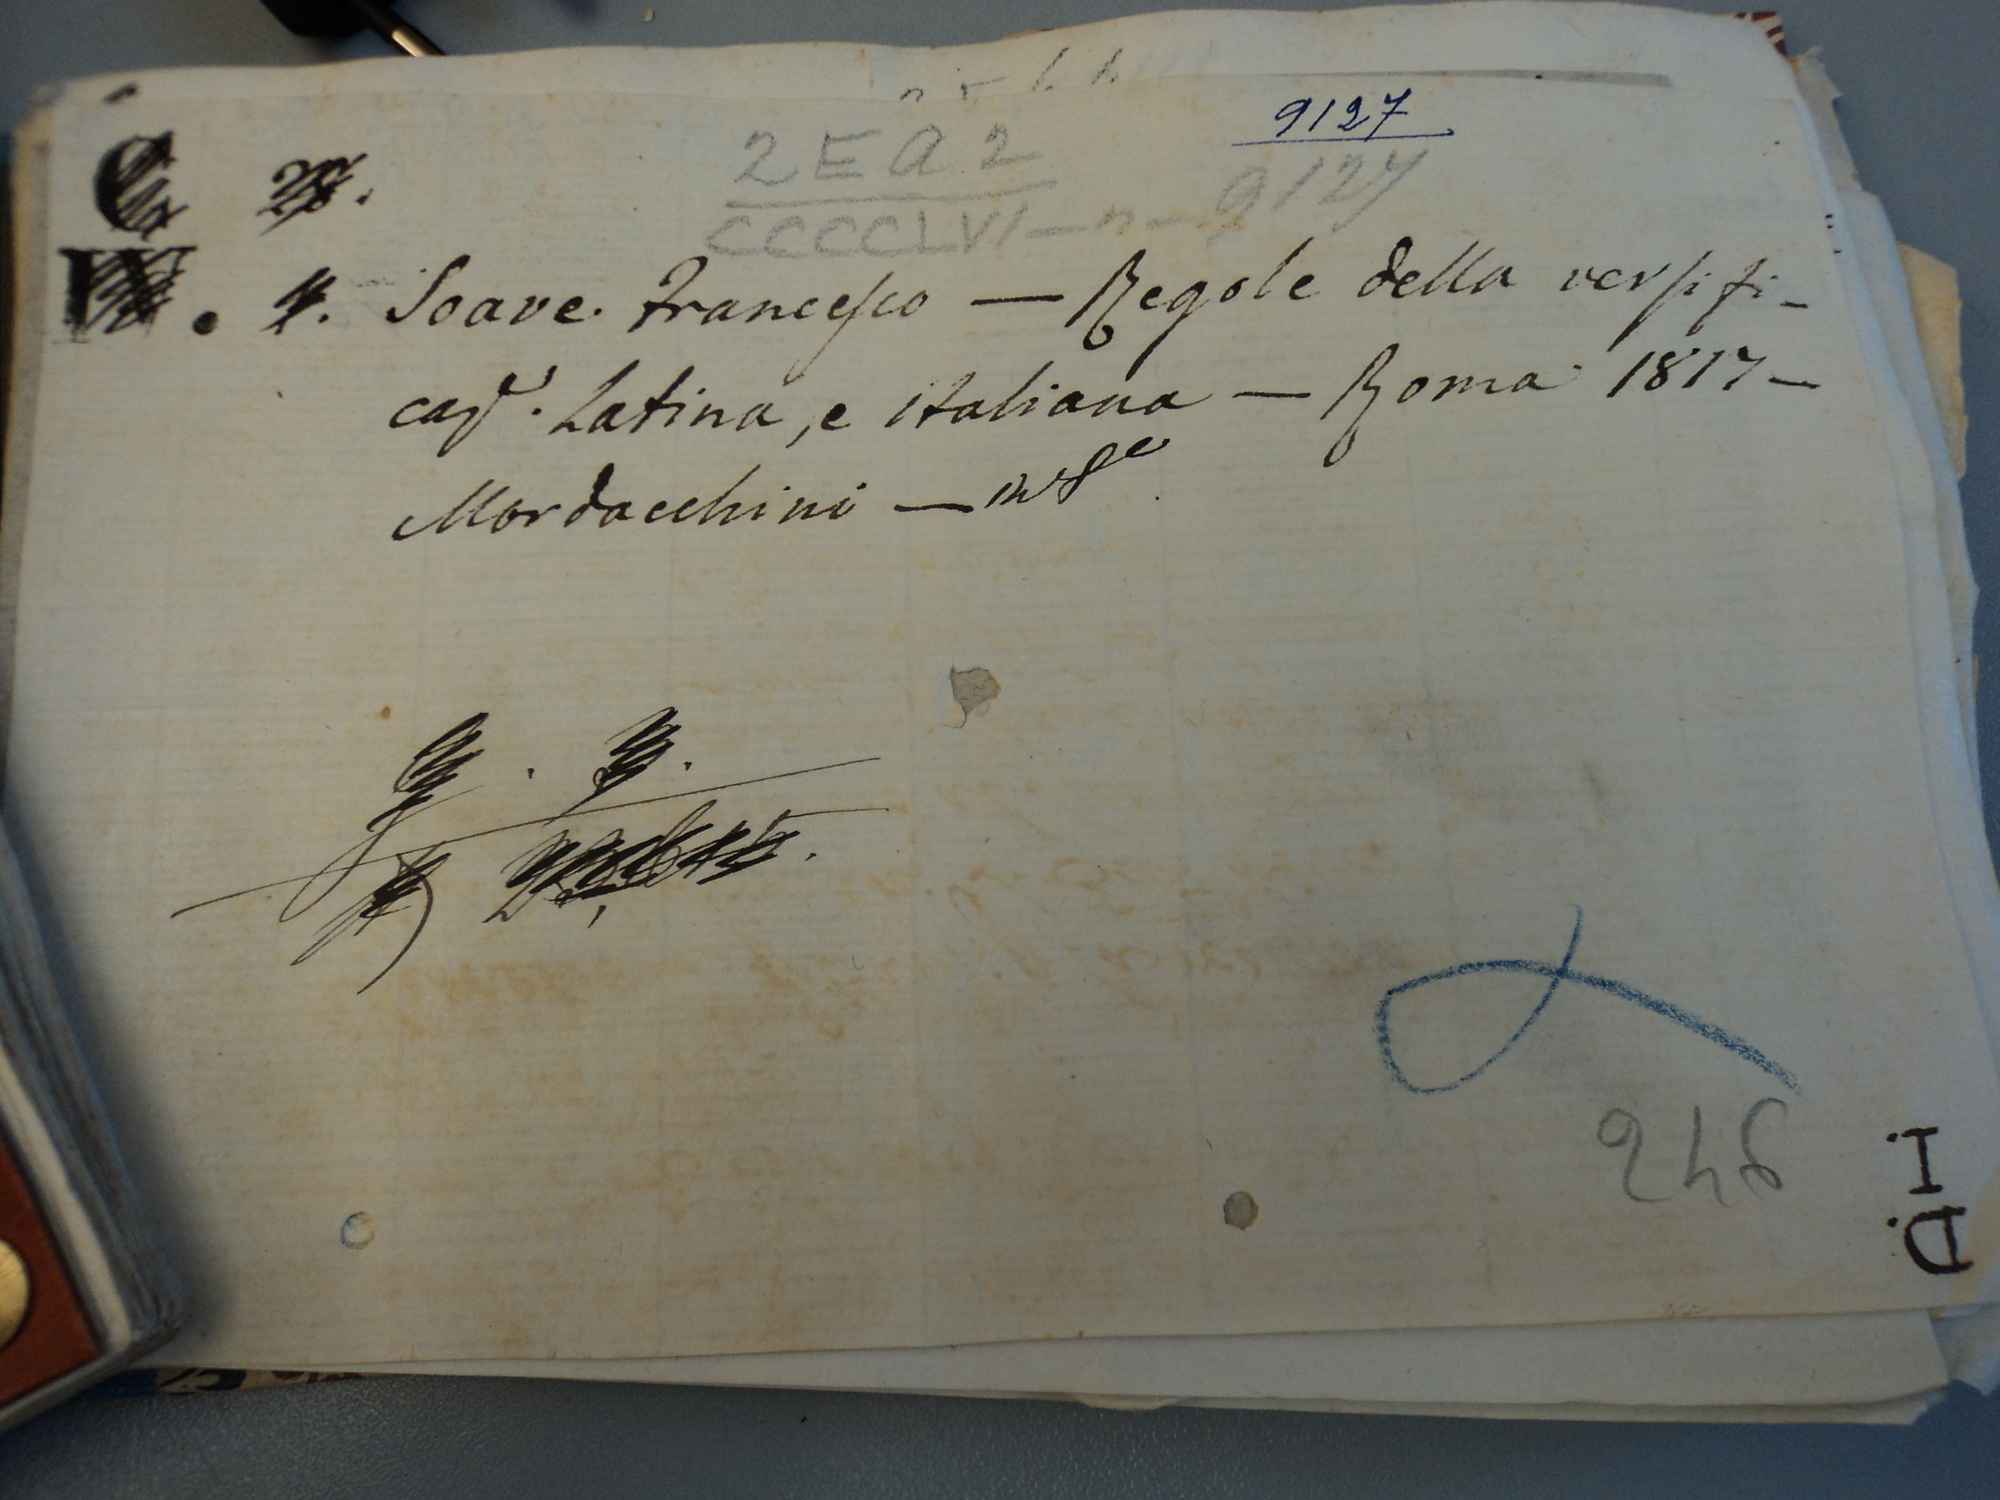 9127
2 E a 2
CCCCLVI - n - 9127
Soave. Francesco — Regole della versifi-
caze. Latina, e italiana — Roma 1817 -
Mordacchini — in 8º
246
AH